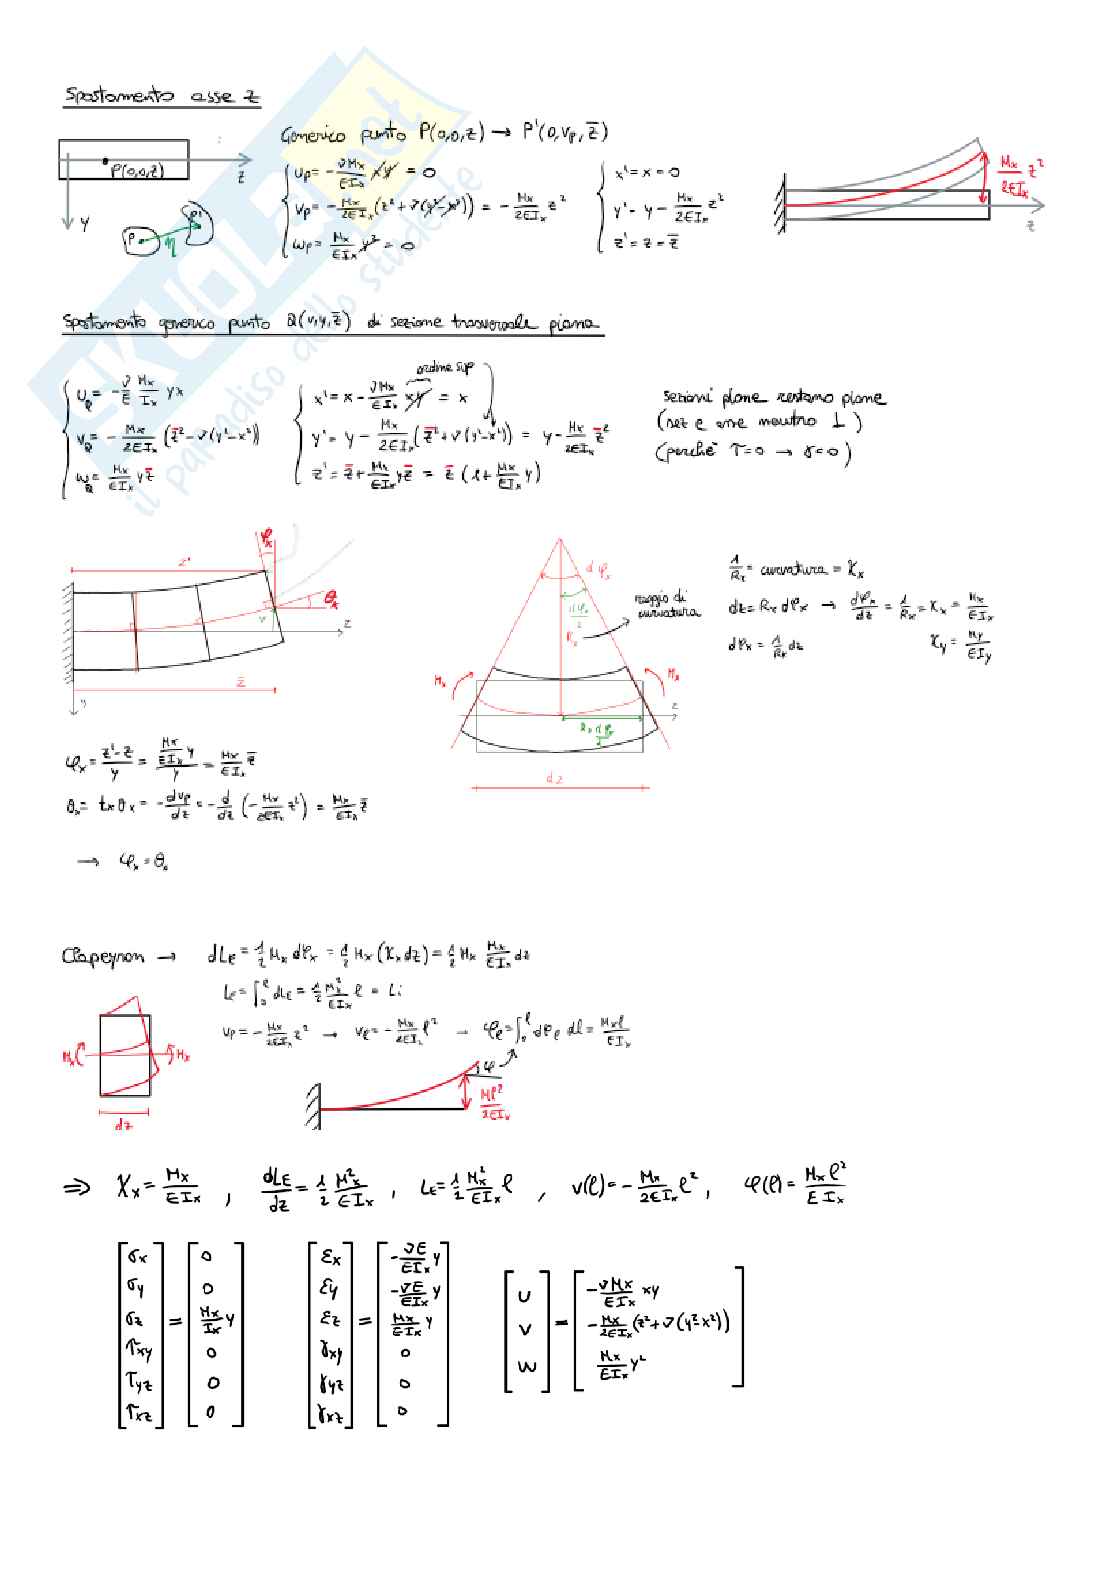 Spostamento asse z
Generico punto P(0,0,z) → P'(0,vp,z̄)
P(0,0,z)
z
y
P
P'
η
up = -νMx/EIx xy = 0
vp = -Mx/2EIx (z² + ν(y²-x²)) = -Mx/2EIx z²
wp = Mx/EIx y² = 0
x' = x = 0
y' = y - Mx/2EIx z²
z' = z = z̄
Mx/2EIx z²
z
Spostamento generico punto Q(v,y,z̄) di sezione trasversale piana
ordine sup
uQ = -ν/E Mx/Ix yx
vQ = -Mx/2EIx (z̄² - ν(y²-x²))
wQ = Mx/EIx y z̄
x' = x - νMx/EIx xy = x
y' = y - Mx/2EIx (z̄² + ν(y²-x²)) = y - Mx/2EIx z̄²
z' = z̄ + Mx/EIx y z̄ = z̄ (1 + Mx/EIx y)
Sezioni piane restano piane
(sez e asse neutro ⊥)
(perchè τ=0 → γ=0)
φx
z'
θx
v
z
z̄
y
dφx
dφx/2
Rx
raggio di curvatura
Mx
Mx
z
Rx dφx/2
dz
1/Rx = curvatura = Χx
dz = Rx dφx → dφx/dz = 1/Rx = Χx = Mx/EIx
dφx = 1/Rx dz
Χy = My/EIy
φx = z'-z/y = Mx/EIx y/y = Mx/EIx z̄
θx = tx θx = -dvp/dz = -d/dz (-Mx/2EIx z²) = Mx/EIx z̄
→ φx = θx
Clapeyron → dLE = 1/2 Mx dφx = 1/2 Mx (Χx dz) = 1/2 Mx Mx/EIx dz
LE = ∫₀^ℓ dLE = 1/2 Mx²/EIx ℓ = Li
vp = -Mx/2EIx z² → vℓ = -Mx/2EIx ℓ² → φℓ = ∫₀^ℓ dφℓ dl = Mxℓ/EIx
Mx
Mx
dz
φ
Mℓ²/2EIx
⇒ Χx = Mx/EIx , dLE/dz = 1/2 Mx²/EIx , LE = 1/2 Mx²/EIx ℓ , v(ℓ) = -Mx/2EIx ℓ² , φ(ℓ) = Mx ℓ²/E Ix
[σx σy σz τxy τyz τxz] = [0 0 Mx/Ix y 0 0 0]
[εx εy εz γxy γyz γxz] = [-νE/EIx y -νE/EIx y Mx/EIx y 0 0 0]
[u v w] = [-νMx/EIx xy -Mx/2EIx (z² + ν(y²-x²)) Mx/EIx y²]
SKUOLA.net
il paradiso dello studente